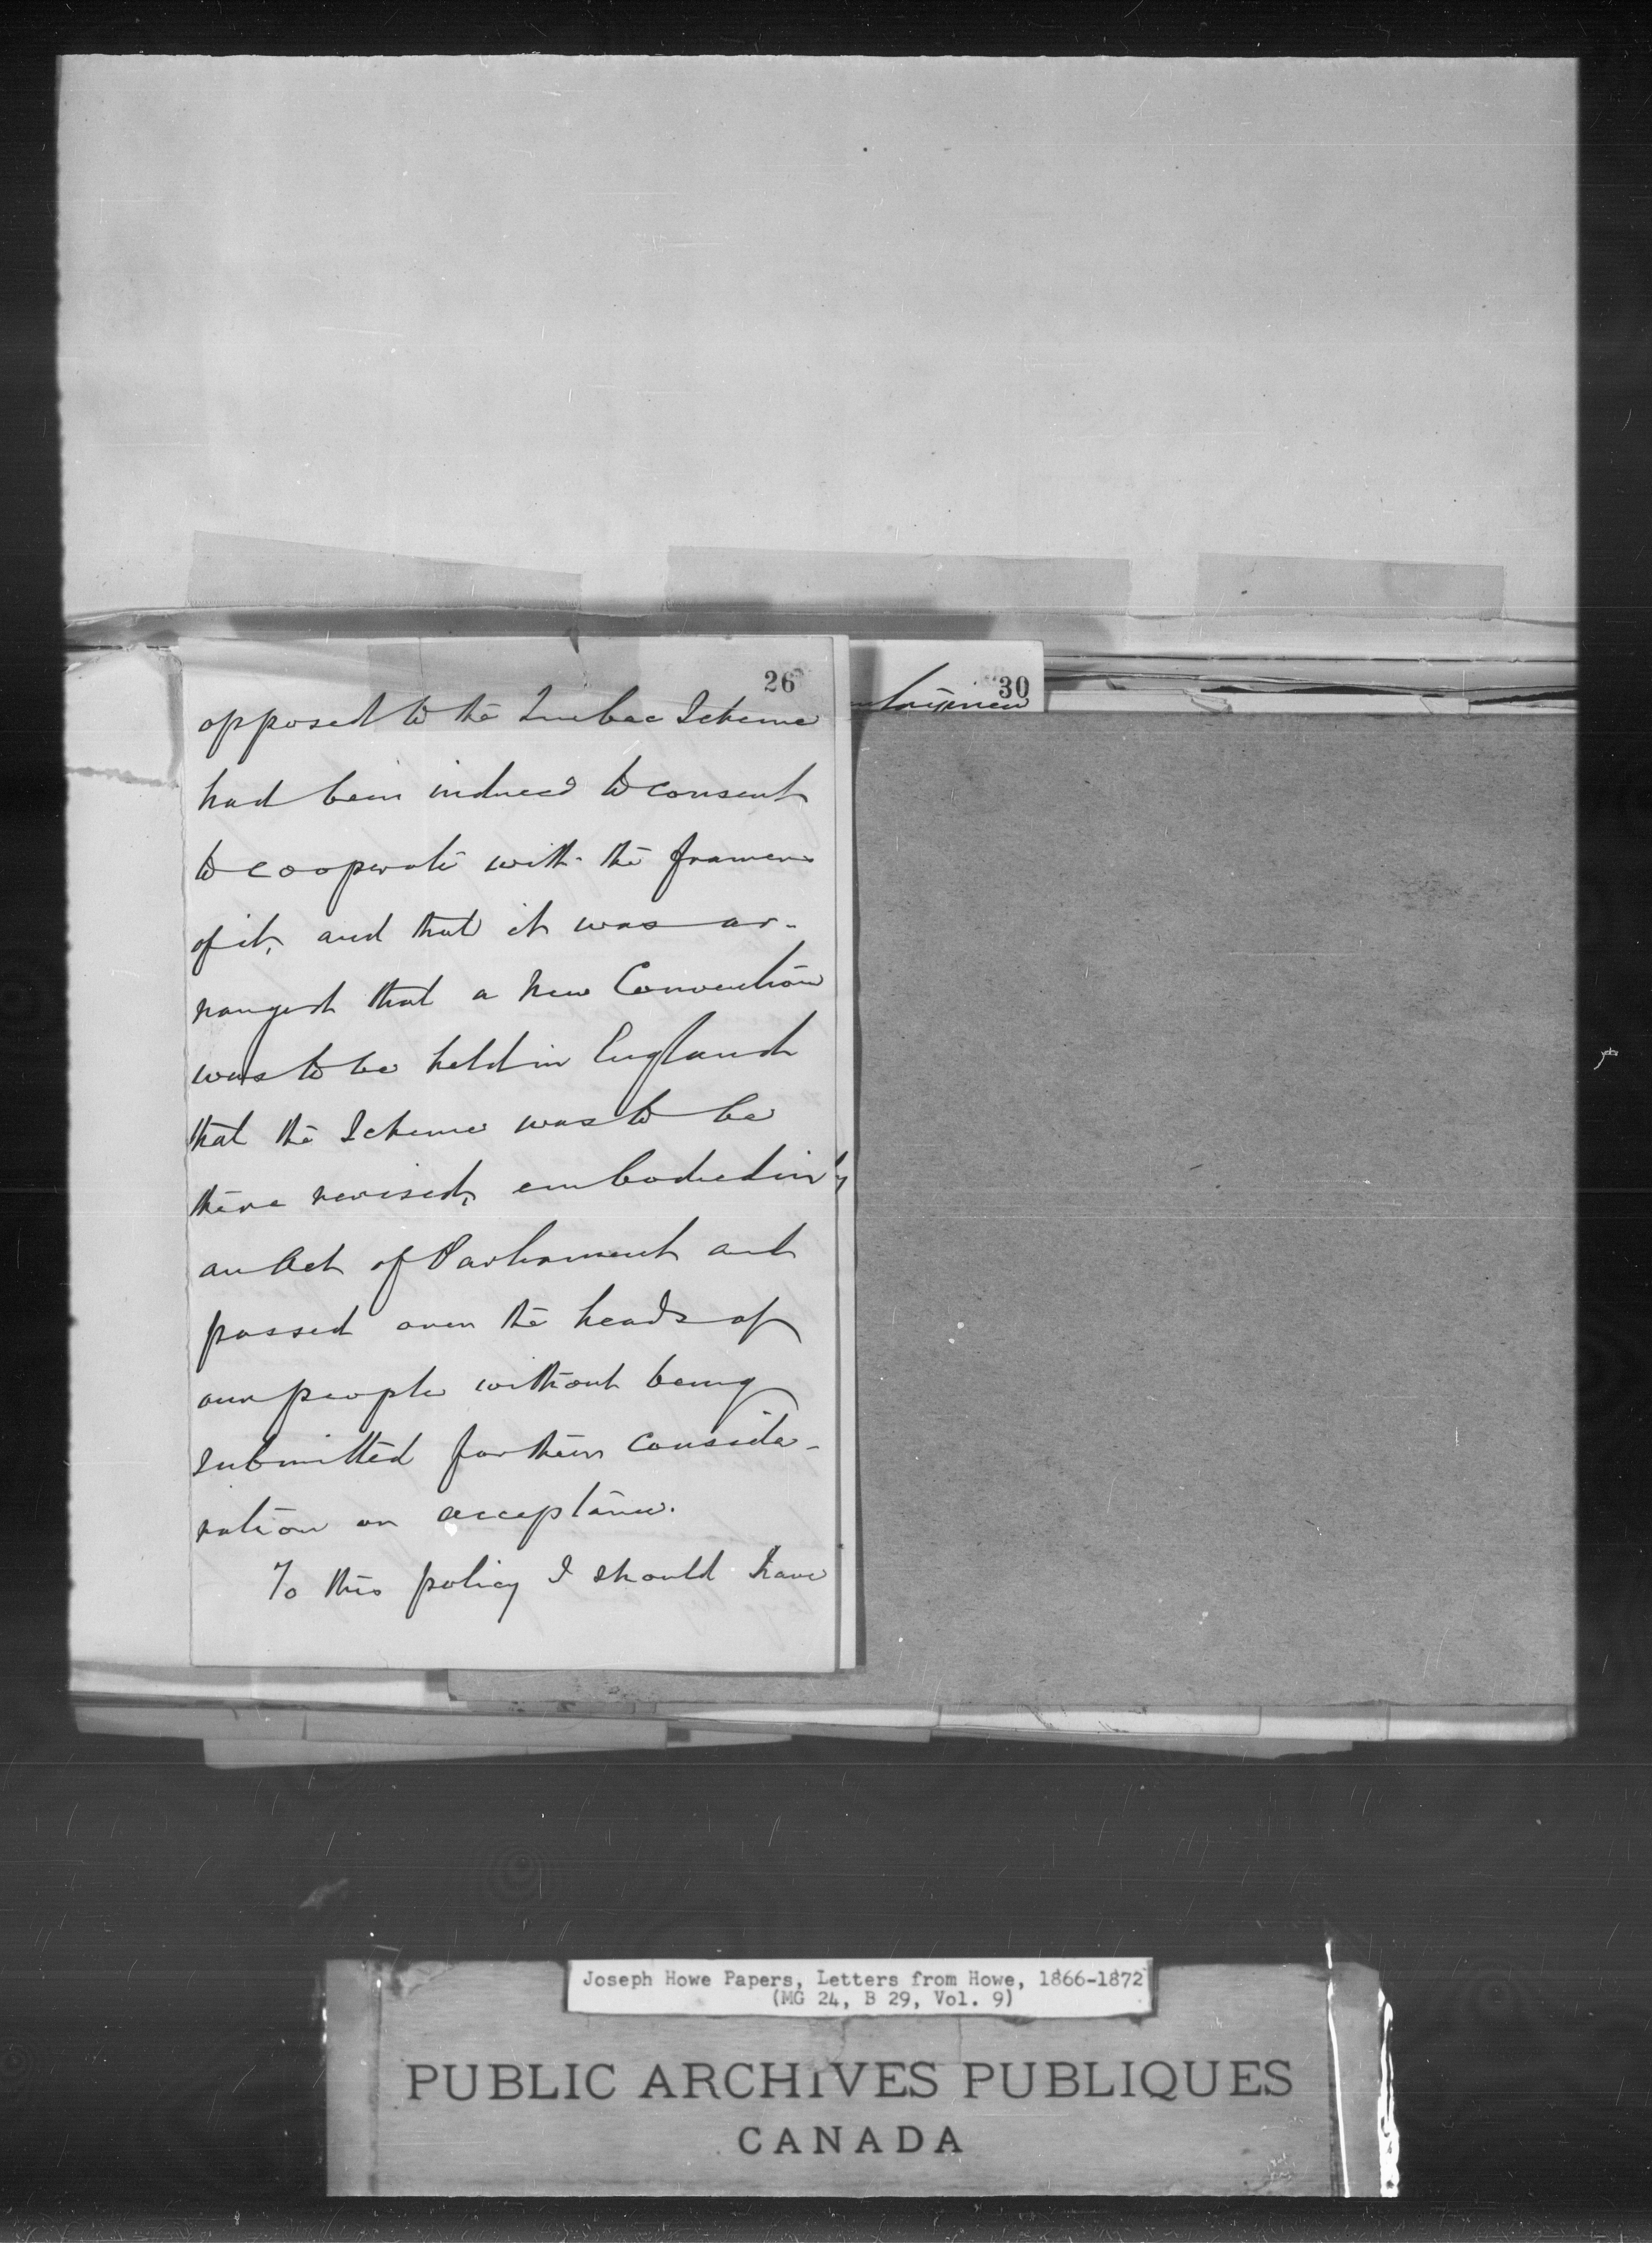 26
opposed to the Quebec Scheme
had been induced to consent
to cooperate with the framers
of it, and that it was ar-
ranged that a new Convention
was to be held in England
that the Scheme was to be
there revised, embodied in
an Act of Parliament and
passed over the heads of
our people without being
submitted for their conside-
ration or acceptance.
To this policy I should have
30
Joseph Howe Papers, Letters from Howe, 1866-1872
(MG 24, B 29, Vol. 9)
PUBLIC ARCHIVES PUBLIQUES
CANADA